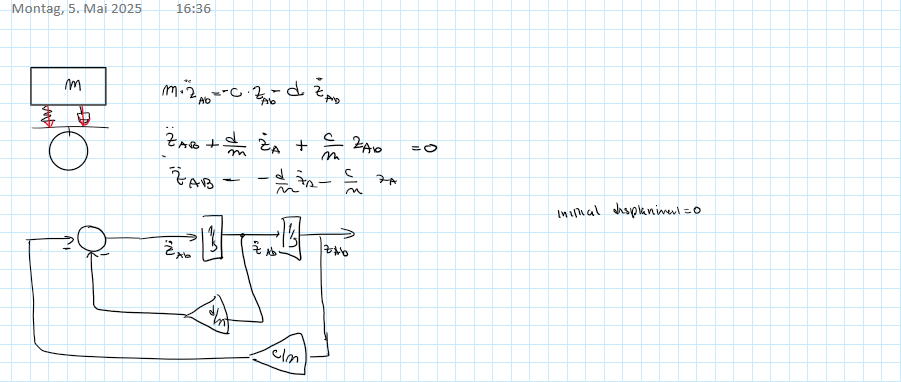 Montag, 5. Mai 2025 16:36
m
m·z̈_Ab = -c·z_Ab - d ż_Ab
z̈_AB + d/m ż_A + c/m z_Ab = 0
z̈_AB = -d/m ż_A - c/m z_A
initial = 0
- -
z̈_Ab 1/s ż_Ab 1/s z_Ab
d/m
c/m